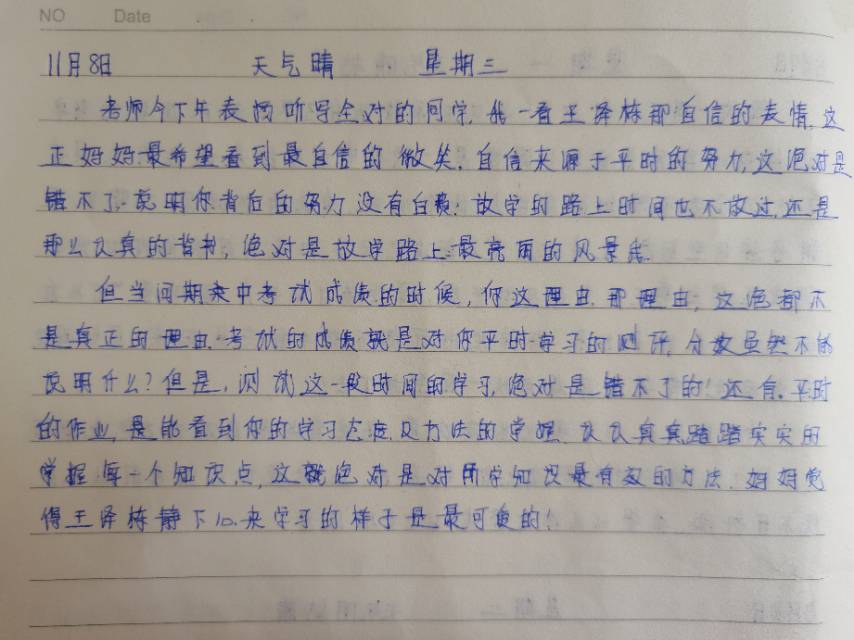 NO Date
11月8日 天气晴 星期三
老师今下午表扬听写全对的同学,我一看王泽栋那自信的表情,这
正好妈妈最希望看到最自信的微笑.自信来源于平时的努力,这绝对是
错不了.说明你背后的努力没有白费!放学的路上时间也不放过,还是
那么认真的背书,绝对是放学路上最亮丽的风景线.
但当问期末中考试成绩的时候,你这理由.那理由,这绝都不
是真正的理由.考试的成绩就是对你平时学习的测评,分数虽然不能
说明什么?但是,测试这一段时间的学习,绝对是错不了的!还有.平时
的作业,是能看到你的学习态度及方法的掌握.认认真真踏踏实实的
掌握每一个知识点,这就绝对是对所学知识最有效的方法.妈妈觉
得王泽栋静下心来学习的样子是最可爱的!